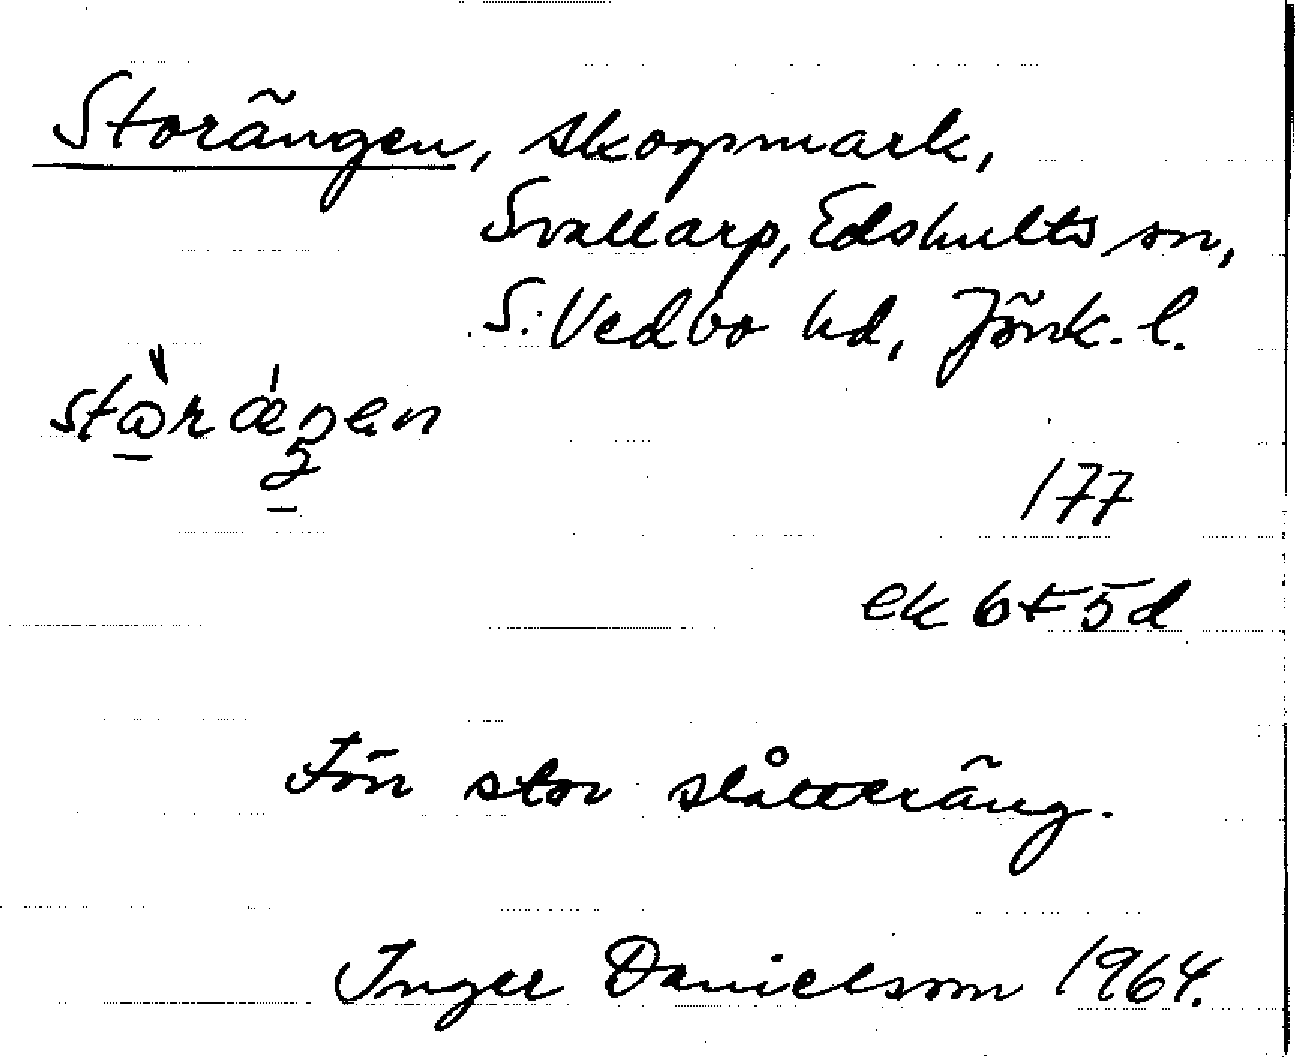 Storängen, skogsmark,
Svallarp, Edshults sn,
S. Vedbo hd, Jönk. l.
177
ek 6 f 5 d
Förr stor slåtteräng.
Inger Danielsson 1964.